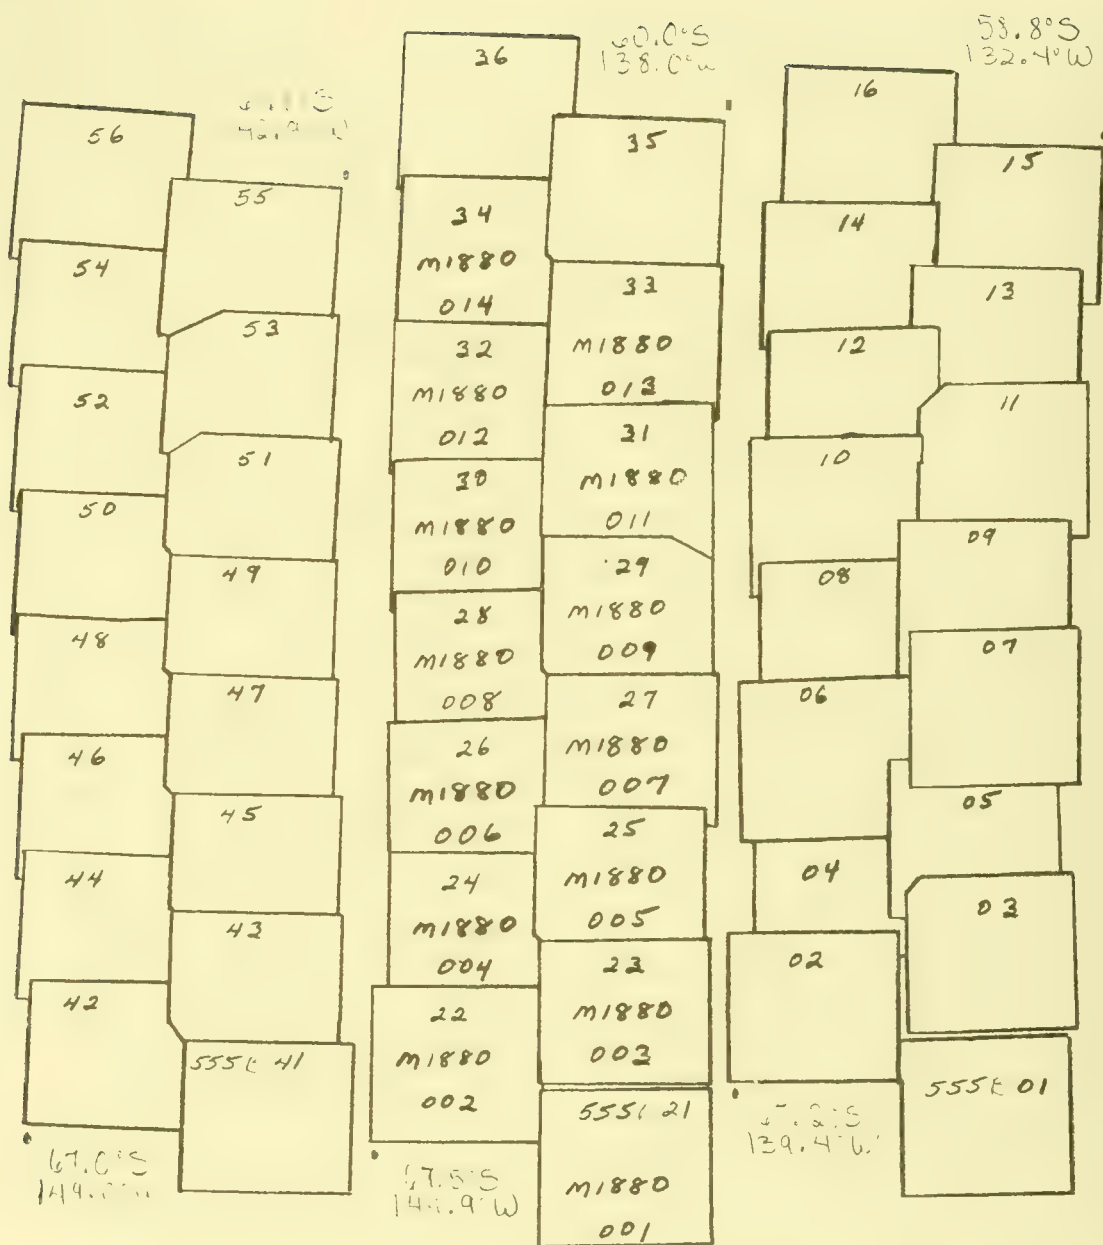 56
55
54
53
52
51
50
49
48
47
46
45
44
43
42
41
67.0°S
36
60.0°S
138.0°W
35
34
M1880
014
33
M1880
013
32
M1880
012
31
M1880
011
30
M1880
010
29
M1880
009
28
M1880
008
27
M1880
007
26
M1880
006
25
M1880
005
24
M1880
004
23
M1880
003
22
M1880
002
21
M1880
001
67.5°S
58.8°S
132.4°W
16
15
14
13
12
11
10
09
08
07
06
05
04
03
02
01
139.4°W